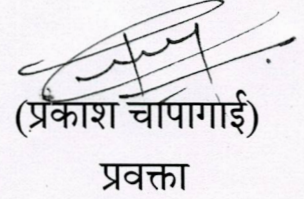 (प्रकाश चापागाई)
प्रवक्ता